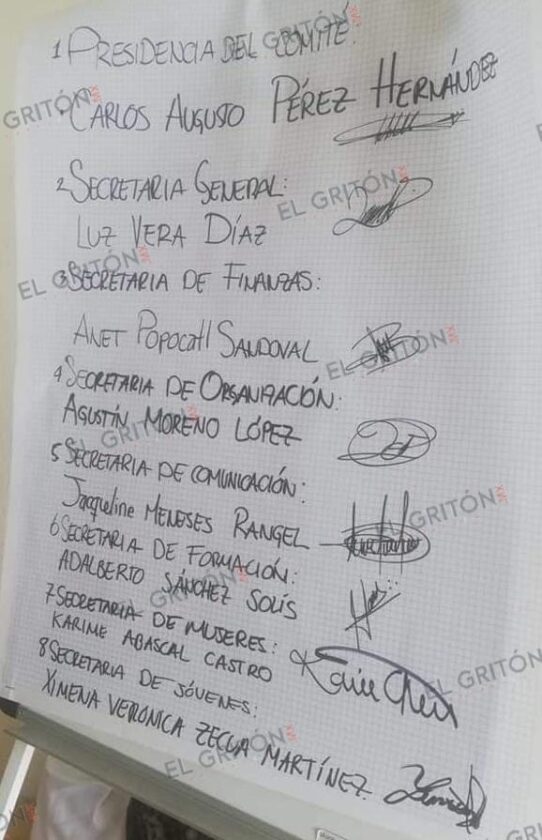 1 PRESIDENCIA DEL COMITÉ:
CARLOS AUGUSTO PÉREZ HERNÁNDEZ
2 SECRETARIA GENERAL:
LUZ VERA DÍAZ
3 SECRETARIA DE FINANZAS:
ANET POPOCATL SANDOVAL
4 SECRETARIA DE ORGANIZACIÓN:
AGUSTÍN MORENO LÓPEZ
5 SECRETARIA DE COMUNICACIÓN:
Jacqueline MENESES RANGEL
6 SECRETARIA DE FORMACIÓN:
ADALBERTO SÁNCHEZ SOLÍS
7 SECRETARIA DE MUJERES:
KARIME ABASCAL CASTRO
8 SECRETARIA DE JÓVENES:
XIMENA VERONICA ZECUA MARTÍNEZ
EL GRITÓN